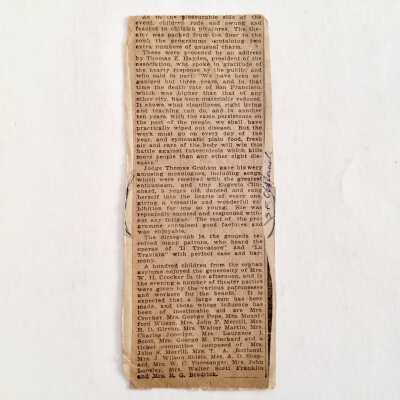 As to the pleasurable side of the
event, children rode and swung and
feasted to childish pleasures. The the-
ater was packed from the floor to the
roof, the programme containing many
extra numbers of unusual charm.
These were preceded by an address
by Thomas E. Hayden, president of the
association, who spoke in gratitude of
the hearty response by the public, and
who said in part: "We have been or-
ganized but three years, and in that
time the death rate of San Francisco,
which was higher than that of any
other city, has been materially reduced.
It shows what cleanliness, right living
and teaching can do, and in another
ten years, with the same persistence on
the part of the people, we shall have
practically wiped out disease. But the
work must go on every day of the
year, and systematic plain food, fresh
air and care of the body will win this
battle against tuberculosis which kills
more people than any other eight dis-
eases."
Judge Thomas Graham gave his very
amusing monologues, including songs,
which were received with the greatest
enthusiasm, and tiny Eugenia Clin-
chard, 5 years old, danced and sang
herself into the hearts of every one,
giving a versatile and wonderful ex-
hibition for one so young. She was
repeatedly encored and responded with-
out any fatigue. The rest of the pro-
gramme contained good features and
was enjoyable.
The dictograph in the grounds re-
ceived many patrons, who heard the
operas of "Il Trovatore" and "La
Traviata" with perfect ease and har-
mony.
A hundred children from the orphan
asylums enjoyed the generosity of Mrs.
W. H. Crocker in the afternoon, and in
the evening a number of theater parties
were given by the various patronesses
and workers for the benefit. It is
expected that a large sum has been
made, and those whose influence has
been of inestimable aid are Mrs.
Crocker, Mrs. George Pope, Mrs. Mount-
ford Wilson, Mrs. John F. Merrill, Mrs.
H. D. Girvin, Mrs. Walter Martin, Mrs.
Charles Josselyn, Mrs. Laurance I.
Scott, Mrs. George M. Pinckard and a
ticket committee composed of Mrs.
John S. Merrill, Mrs. T. A.
Mrs. J. Wilson Shiels, Mrs. A. D. Shep-
ard, Mrs. W. C. Mrs. John
Mrs. Walter Scott Franklin
and Mrs. R. G. Brodrick.